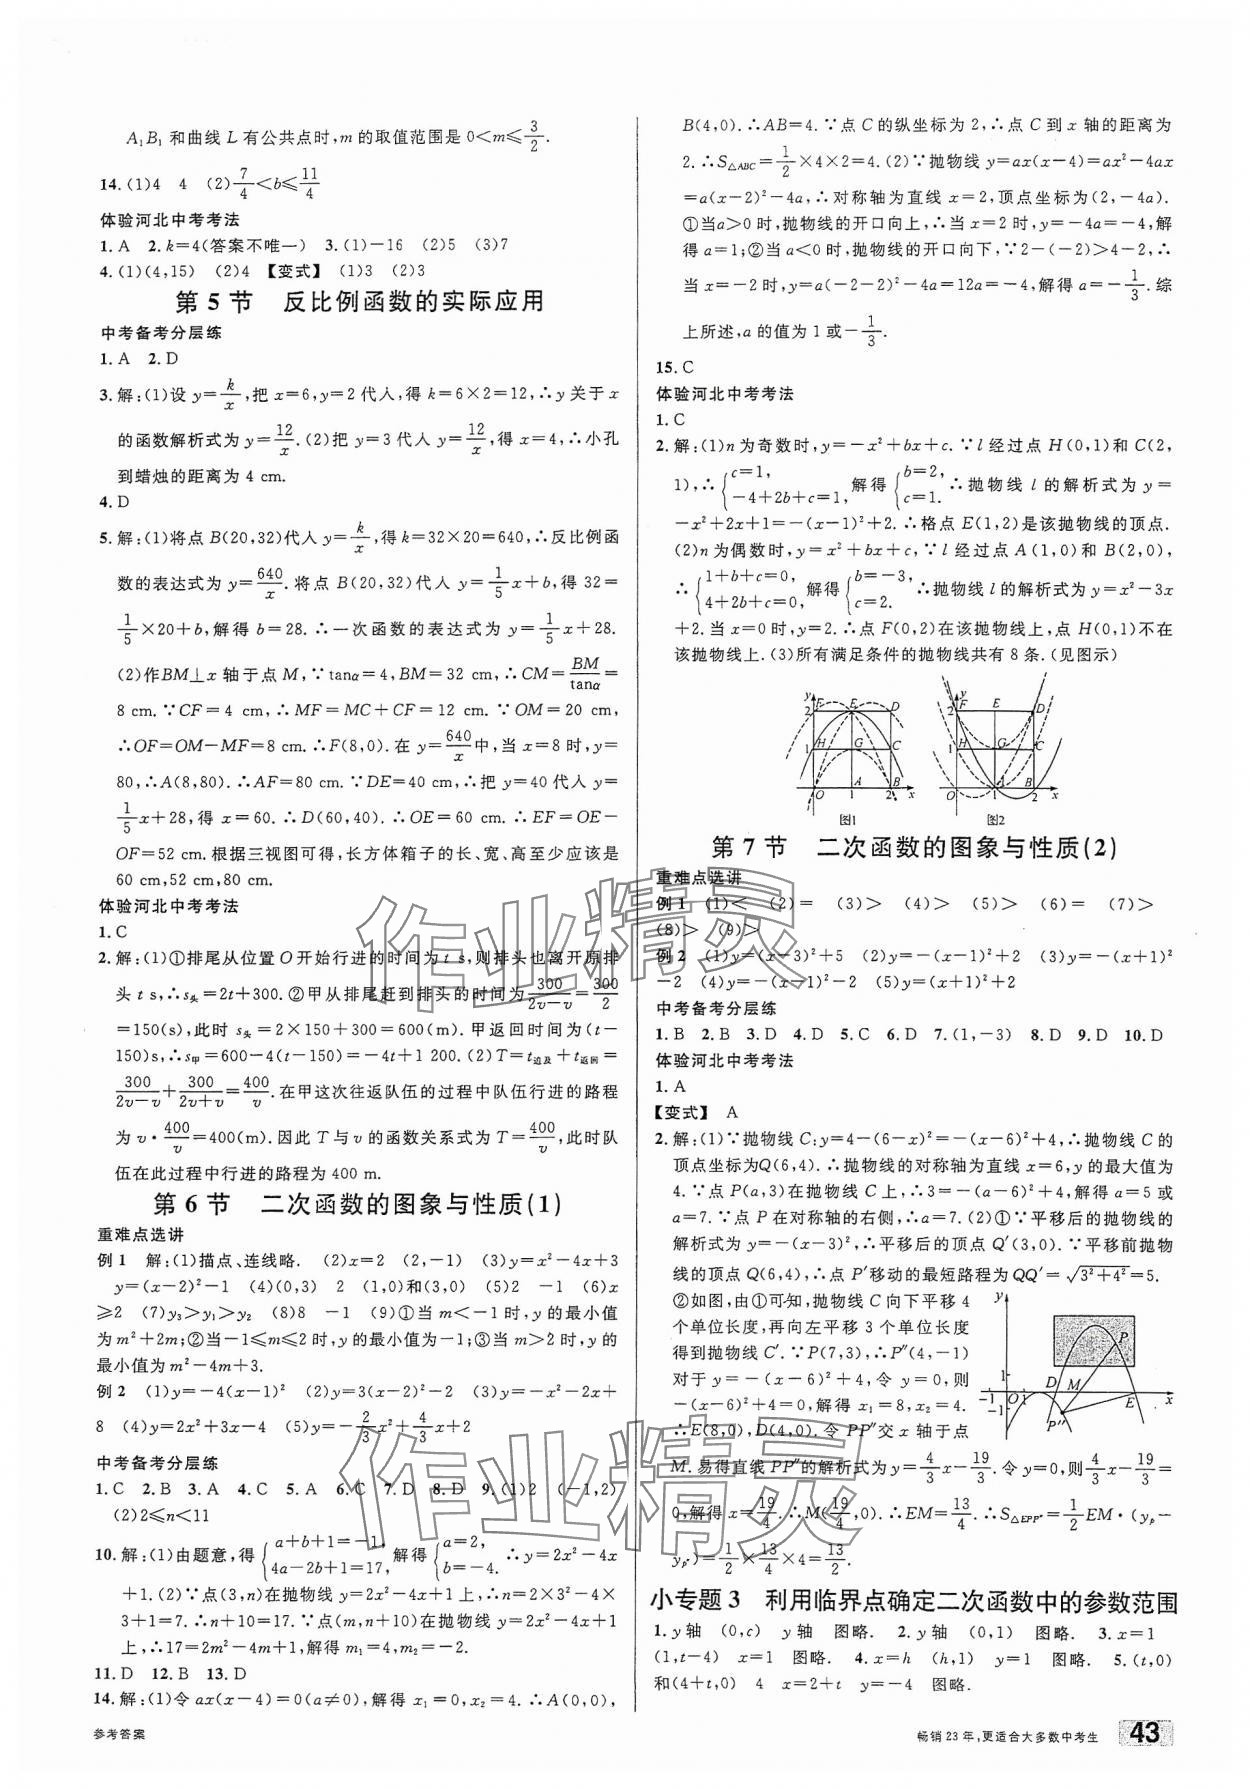 A₁B₁ 和曲线 L 有公共点时,m 的取值范围是 0<m≤3/2.
14.(1)4　4　(2)7/4<b≤11/4
体验河北中考考法
1. A　2. k=4(答案不唯一)　3. (1)-16　(2)5　(3)7
4. (1)(4,15)　(2)4　【变式】　(1)3　(2)3
第 5 节　反比例函数的实际应用
中考备考分层练
1. A　2. D
3. 解:(1)设 y=k/x,把 x=6,y=2 代入,得 k=6×2=12,∴y 关于 x
的函数解析式为 y=12/x.(2)把 y=3 代入 y=12/x,得 x=4,∴小孔
到蜡烛的距离为 4 cm.
4. D
5. 解:(1)将点 B(20,32)代入 y=k/x,得 k=32×20=640,∴反比例函
数的表达式为 y=640/x. 将点 B(20,32)代入 y=1/5x+b,得 32=
1/5×20+b,解得 b=28. ∴一次函数的表达式为 y=1/5x+28.
(2)作BM⊥x 轴于点 M,∵tanα=4,BM=32 cm,∴CM=BM/tanα=
8 cm. ∵CF=4 cm,∴MF=MC+CF=12 cm. ∵OM=20 cm,
∴OF=OM-MF=8 cm. ∴F(8,0). 在 y=640/x中,当 x=8 时,y=
80,∴A(8,80). ∴AF=80 cm. ∵DE=40 cm,∴把 y=40 代入 y=
1/5x+28,得 x=60. ∴D(60,40). ∴OE=60 cm. ∴EF=OE-
OF=52 cm. 根据三视图可得,长方体箱子的长、宽、高至少应该是
60 cm,52 cm,80 cm.
体验河北中考考法
1. C
2. 解:(1)①排尾从位置 O 开始行进的时间为 t s,则排头也离开原排
头 t s,∴s头=2t+300. ②甲从排尾赶到排头的时间为300/(2v-v)=300/v=300/2
=150(s),此时 s头=2×150+300=600(m). 甲返回时间为(t-
150)s,∴s甲=600-4(t-150)=-4t+1 200. (2)T=t追及+t返回=
300/(2v-v)+300/(2v+v)=400/v. 在甲这次往返队伍的过程中队伍行进的路程
为 v·400/v=400(m). 因此 T 与 v 的函数关系式为 T=400/v,此时队
伍在此过程中行进的路程为 400 m.
第 6 节　二次函数的图象与性质(1)
重难点选讲
例 1　解:(1)描点、连线略.　(2)x=2　(2,-1)　(3)y=x²-4x+3
y=(x-2)²-1　(4)(0,3)　2　(1,0)和(3,0)　(5)2　-1　(6)x
≥2　(7)y₃>y₁>y₂　(8)8　-1　(9)①当 m<-1 时,y 的最小值
为 m²+2m;②当-1≤m≤2 时,y 的最小值为-1;③当 m>2 时,y 的
最小值为 m²-4m+3.
例 2　(1)y=-4(x-1)²　(2)y=3(x-2)²-2　(3)y=-x²-2x+
8　(4)y=2x²+3x-4　(5)y=-2/3x²+4/3x+2
中考备考分层练
1. C　2. B　3. A　4. C　5. A　6. C　7. D　8. D　9. (1)2　(-1,2)
(2)2≤n<11
10. 解:(1)由题意,得{a+b+1=-1, 4a-2b+1=17,解得{a=2, b=-4.∴y=2x²-4x
+1. (2)∵点(3,n)在抛物线 y=2x²-4x+1 上,∴n=2×3²-4×
3+1=7. ∴n+10=17. ∵点(m,n+10)在抛物线 y=2x²-4x+1
上,∴17=2m²-4m+1,解得 m₁=4,m₂=-2.
11. D　12. B　13. D
14. 解:(1)令 ax(x-4)=0(a≠0),解得 x₁=0,x₂=4. ∴A(0,0),
B(4,0). ∴AB=4. ∵点 C 的纵坐标为 2,∴点 C 到 x 轴的距离为
2. ∴S△ABC=1/2×4×2=4. (2)∵抛物线 y=ax(x-4)=ax²-4ax
=a(x-2)²-4a,∴对称轴为直线 x=2,顶点坐标为(2,-4a).
①当a>0 时,抛物线的开口向上,∴当 x=2 时,y=-4a=-4,解
得 a=1;②当 a<0 时,抛物线的开口向下,∵2-(-2)>4-2,∴
当 x=-2 时,y=a(-2-2)²-4a=12a=-4,解得 a=-1/3. 综
上所述,a 的值为 1 或-1/3.
15. C
体验河北中考考法
1. C
2. 解:(1)n 为奇数时,y=-x²+bx+c. ∵l 经过点 H(0,1)和 C(2,
1),∴{c=1, -4+2b+c=1,解得{b=2, c=1.∴抛物线 l 的解析式为 y=
-x²+2x+1=-(x-1)²+2. ∴格点 E(1,2)是该抛物线的顶点.
(2)n 为偶数时,y=x²+bx+c,∵l 经过点 A(1,0)和 B(2,0),
∴{1+b+c=0, 4+2b+c=0,解得{b=-3, c=2.∴抛物线 l 的解析式为 y=x²-3x
+2. 当 x=0 时,y=2. ∴点 F(0,2)在该抛物线上,点 H(0,1)不在
该抛物线上. (3)所有满足条件的抛物线共有 8 条. (见图示)
y 2 F E D 1 H G C O 1 A 2 B x 图1
y 2 F E D 1 H G C O 1 A B 2 x 图2
第 7 节　二次函数的图象与性质(2)
重难点选讲
例 1　(1)<　(2)=　(3)>　(4)>　(5)>　(6)=　(7)>
(8)>　(9)>
例 2　(1)y=(x-3)²+5　(2)y=-(x-1)²+2　(3)y=-(x+1)²
-2　(4)y=-(x-1)²-2　(5)y=(x+1)²+2
中考备考分层练
1. B　2. B　3. D　4. D　5. C　6. D　7. (1,-3)　8. D　9. D　10. D
体验河北中考考法
1. A
【变式】　A
2. 解:(1)∵抛物线 C:y=4-(6-x)²=-(x-6)²+4,∴抛物线 C 的
顶点坐标为Q(6,4). ∴抛物线的对称轴为直线 x=6,y 的最大值为
4. ∵点 P(a,3)在抛物线 C 上,∴3=-(a-6)²+4,解得 a=5 或
a=7. ∵点 P 在对称轴的右侧,∴a=7. (2)①∵平移后的抛物线的
解析式为 y=-(x-3)²,∴平移后的顶点 Q′(3,0). ∵平移前抛物
线的顶点 Q(6,4),∴点 P′移动的最短路程为 QQ′=√3²+4²=5.
②如图,由①可知,抛物线 C 向下平移 4
个单位长度,再向左平移 3 个单位长度
得到抛物线 C′. ∵P(7,3),∴P″(4,-1)
对于 y=-(x-6)²+4,令 y=0,则
-(x-6)²+4=0,解得 x₁=8,x₂=4.
∴E(8,0),D(4,0). 令 PP″交 x 轴于点
y 1 -1 O 1 -1 D M P P″ E x
M. 易得直线 PP″的解析式为 y=4/3x-19/3. 令 y=0,则4/3x-19/3=
0,解得 x=19/4. ∴M(19/4,0). ∴EM=13/4. ∴S△EPP″=1/2EM·(yP-
yP″)=1/2×13/4×4=13/2.
小专题 3　利用临界点确定二次函数中的参数范围
1. y 轴　(0,c)　y 轴　图略.　2. y 轴　(0,1)　图略.　3. x=1
(1,t-4)　x=1　图略.　4. x=h　(h,1)　图略.　5. (t,0)
和(4+t,0)　4　x=2+t　y=-4　图略.
作业精灵
作业精灵
参考答案
畅销 23 年,更适合大多数中考生　43